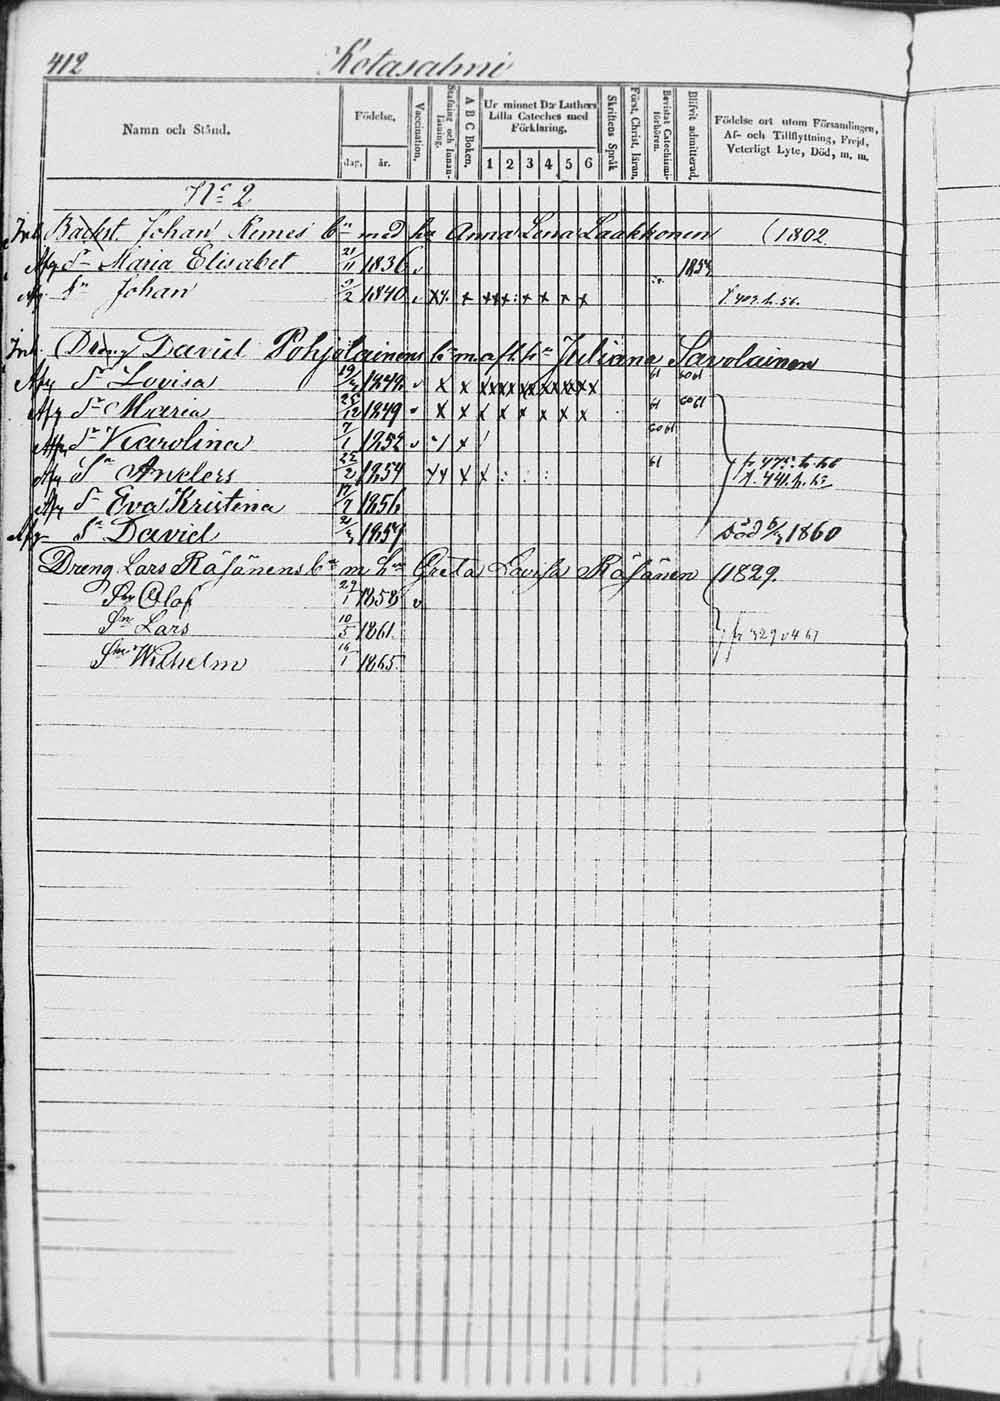 412 Kotasalmi
Namn och Stånd.
Födelse,
dag. år.
Vaccination.
Stafning och Innanläsning.
A B C Boken.
Ur minnet Dr Luthers Lilla Cateches med Förklaring,
1 2 3 4 5 6
Skriftens Språk
Först. Christ. läran.
Bevistat Catechismiförhören.
Blifvit admitterad.
Födelse ort utom Församlingen, Af- och Tillflyttning, Frejd, Veterligt Lyte, Död, m. m.
No 2
Inh. Johan Kemes bn med ha Anna Lena Laakkonen (1802.
Afg Dr Maria Elisabet 21/11 1836 1854
Afg. Sn Johan 2/2 1840 x x x x x x x x
Inh. Dräng David Pohjolainens Juliana Savolainen
Afg Dr Lovisa 19/ 184 x x 61 60 61
Afg Dr Maria 25/12 1849 x x x x x x x x 61 60 61
Afg Dr Karolina 7/1 1852 x 60 61
Afg Sn Anders 22/2 1854 x x 61
Afg Dr Eva Kristina 17/ 1856
Afg Sn David 21/ 1859 Död 1860
Dreng Lars Räsänens bn m hu Greta Lovisa Räsänen (1829.
Sn Olof 29/1 1858
Sn Lars 10/5 1861.
Sn Wilhelm 16/1 1865.